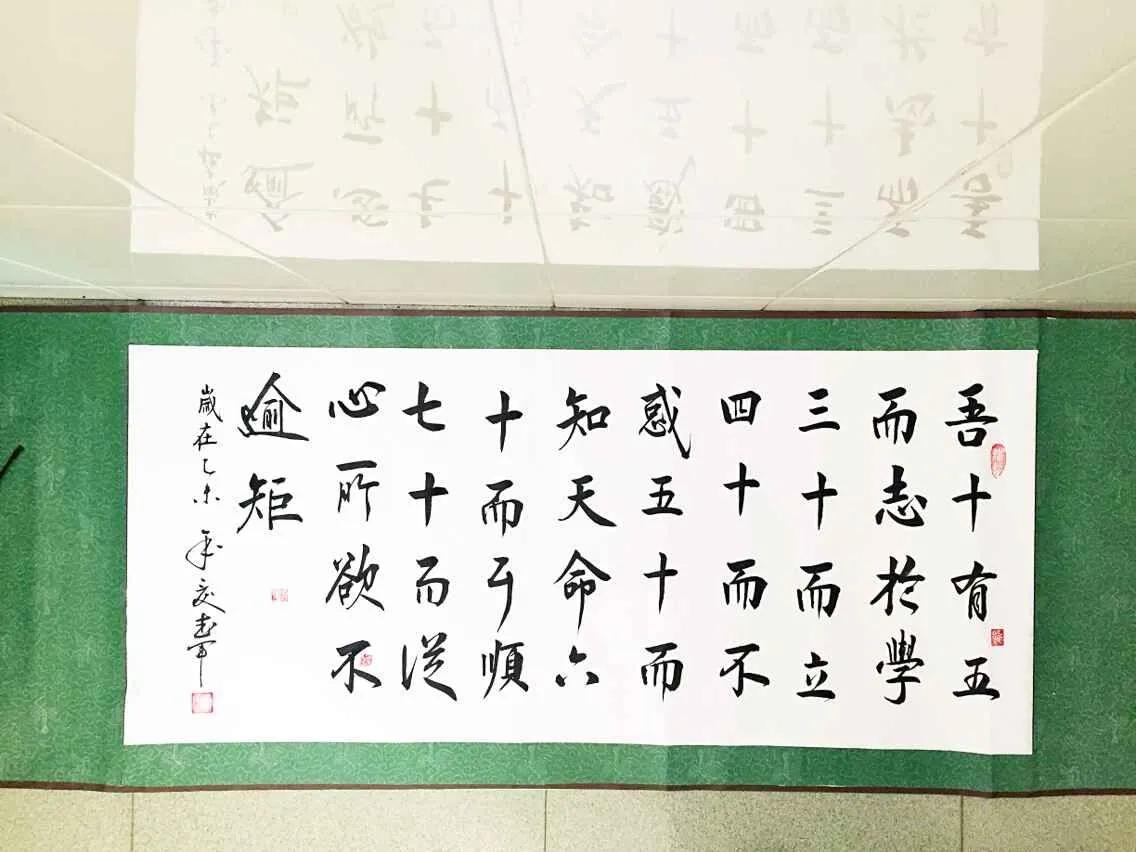 吾十有五
而志於學
三十而立
四十而不
惑五十而
知天命六
十而耳順
七十而從
心所欲不
逾矩
歲在乙未